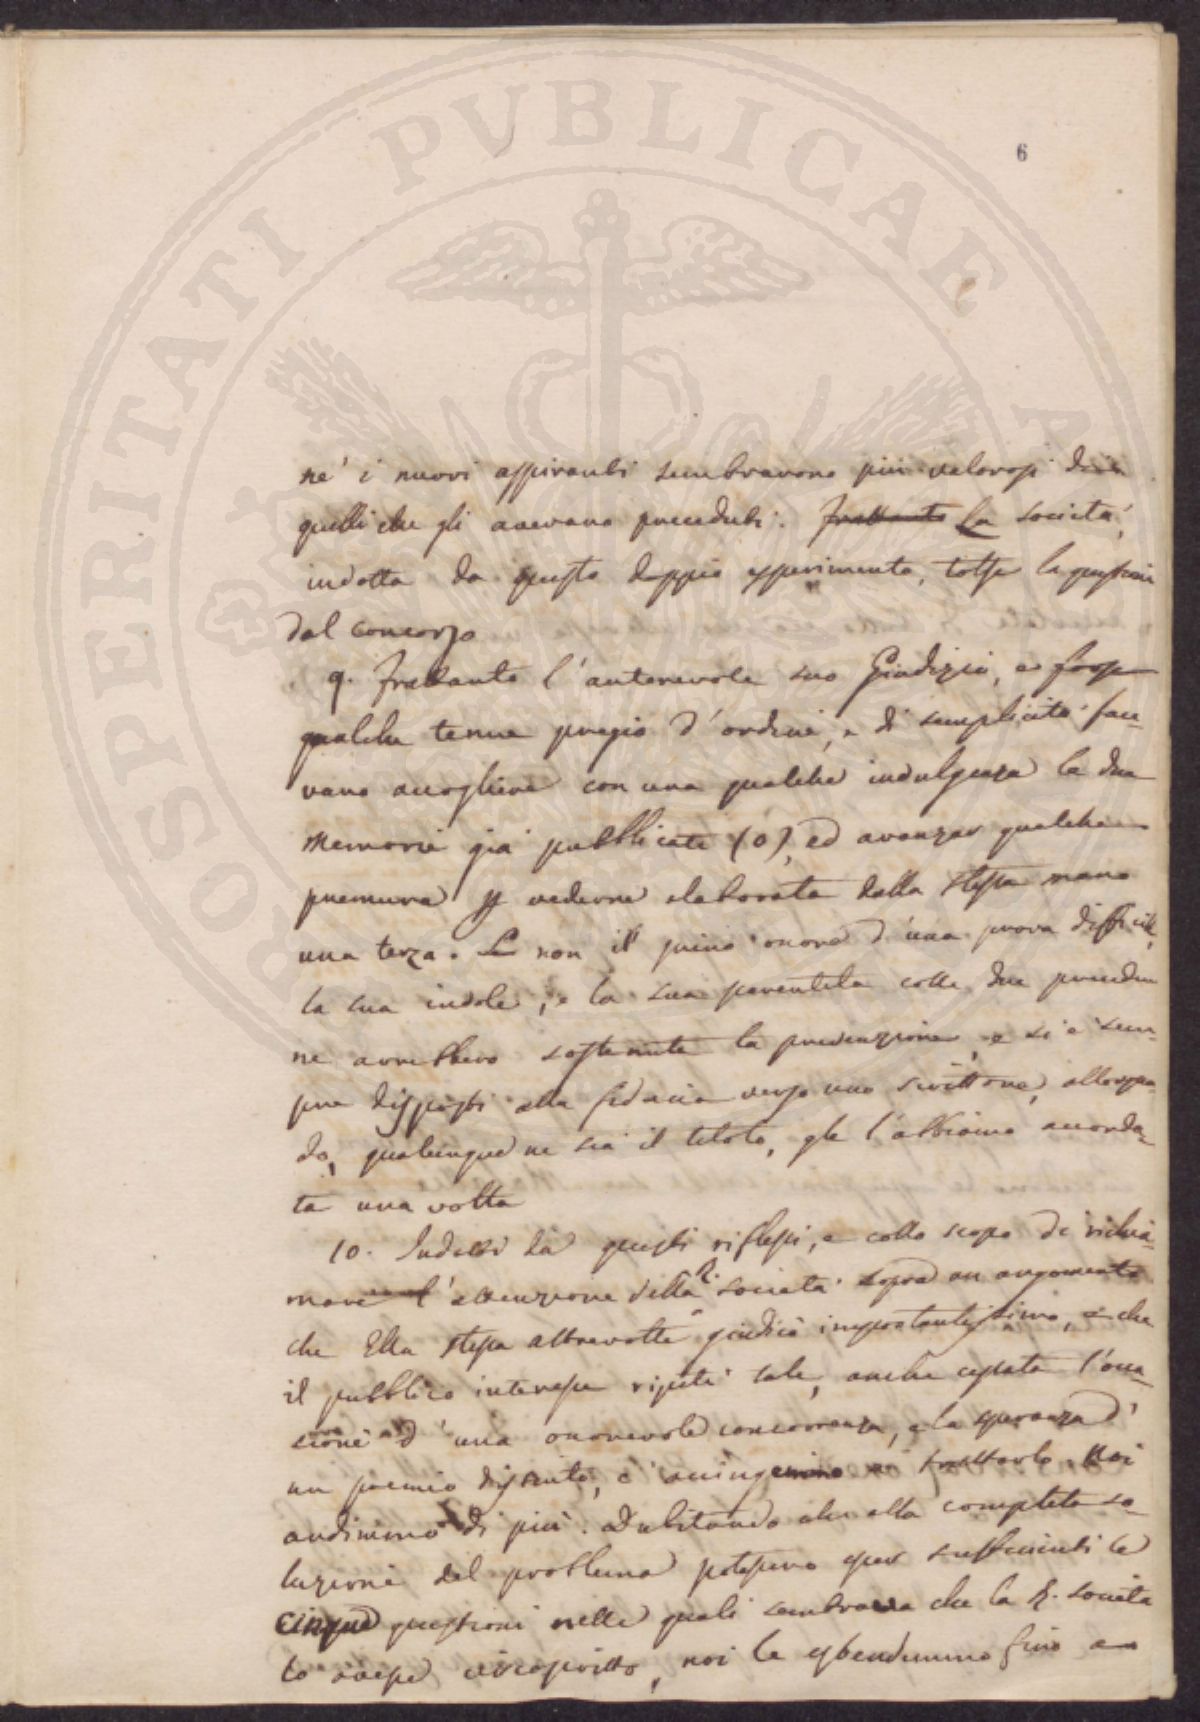 PROSPERITATI PVBLICAE A
6
né i nuovi aspiranti sembravano più valorosi di
quelli che gli avevano preceduti. Frattanto La società,
indotta da questo doppio esperimento, tolse la questione
dal concorso
9. Frattanto l'autorevole suo Giudizio, e forse
qualche tenue pregio d'ordine, e di semplicità face-
vano accogliere con una qualche indulgenza le due
memorie già pubblicate (o), ed avanzar qualche
premura p vederne elaborata dalla stessa mano
una terza. Se non il primo onore d'una prova difficile,
la sua indole, e la sua parentela colle due preceden
ne avrebbero sostenuta la prevenzione, e si è sem-
pre disposti alla fiducia verso uno scrittore, allorqua-
do, qualunque ne sia il titolo, gle l'abbiamo accorda-
ta una volta
10. Indotti da questi riflessi, e collo scopo di richia-
mare l'attenzione della R. società sopra un argomento
che Ella stessa altrevolte giudicò importantissimo, e che
il pubblico interesse riputò tale, anche cessata l'occa-
sione d'una onorevole concorrenza, e la speranza d'
un premio distinto, ci accingemmo a trattarlo. Noi
ardimmo di più. Dubitando che alla completa so-
luzione del problema potessero esser sufficienti le
cinque questioni nelle quali sembrava che la R. società
lo avesse circoscritto, noi le estendemmo fino a